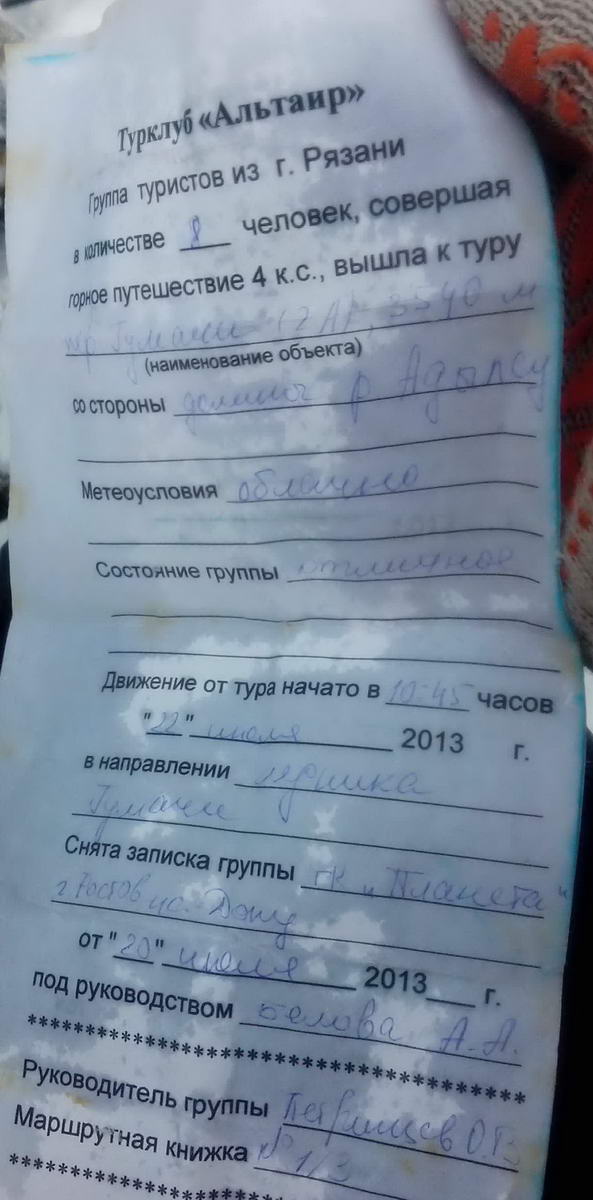 Турклуб «Альтаир»
Группа туристов из г. Рязани
в количестве 8 человек, совершая
горное путешествие 4 к.с., вышла к туру
пер Гумачи 1Б А, 3540 м
(наименование объекта)
со стороны долины р Адылсу
Метеоусловия облачно
Состояние группы отличное
Движение от тура начато в 10:45 часов
"22" июля 2013 г.
в направлении ледника
Гумачи
Снята записка группы ТК "Планета"
г. Ростов на Дону
от "20" июля 2013 г.
под руководством Белова А.А.
************************************
Руководитель группы О.В
Маршрутная книжка № 1/3